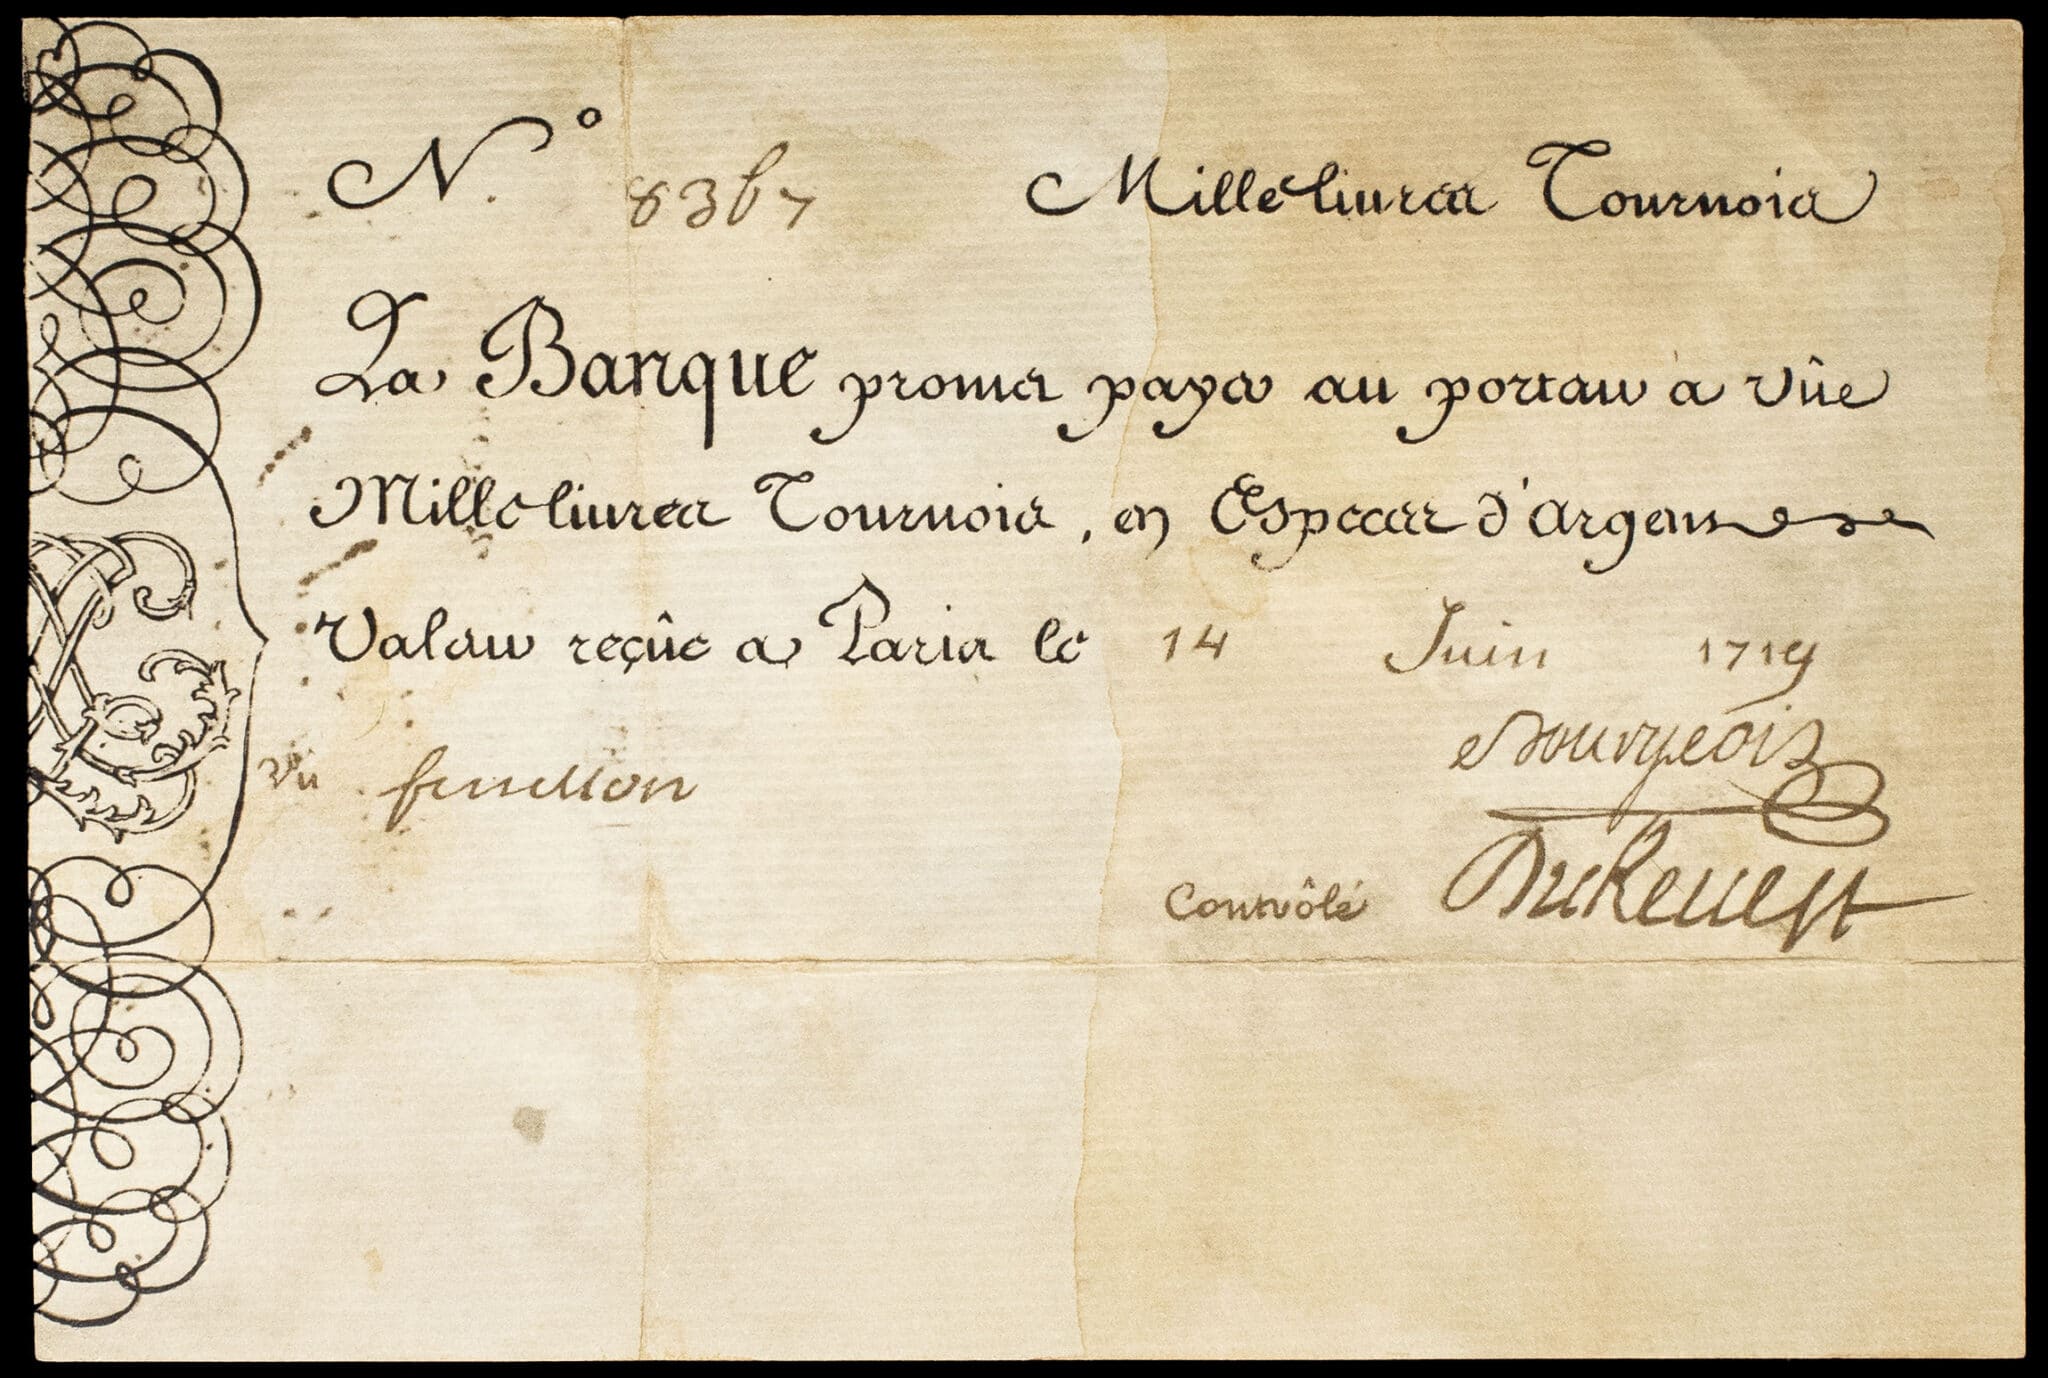 N.° 8367 Mille livres Tournois
La Banque promet payer au porteur à vûe
Mille livres Tournois, en Especes d'Argent
Valeur reçûe a Paris le 14 Juin 1719
Vu fenellon Bourgeois
Contrôlé Durevest